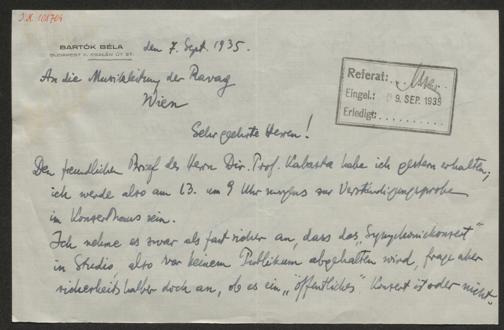 I.N. 108704
BARTÓK BÉLA
BUDAPEST II. CSALÁN ÚT 27.
den 7. Sept. 1935.
An die Musikleitung der Ravag
Wien
Referat:
Eingel.: 9. SEP. 1935
Erledigt:
Sehr geehrte Herren!
Den freundlichen Brief des Herrn Dir. Prof. Kabasta habe ich gestern erhalten;
ich werde also am 13. um 9 Uhr morgens zur Verständigungsprobe
im Konzerthaus sein.
Ich nehme es zwar als fast sicher an, dass das „Symphoniekonzert"
in Studio, also vor keinem Publikum abgehalten wird, frage aber
sicherheitshalber doch an, ob es ein „öffentliches" Konzert ist oder nicht.